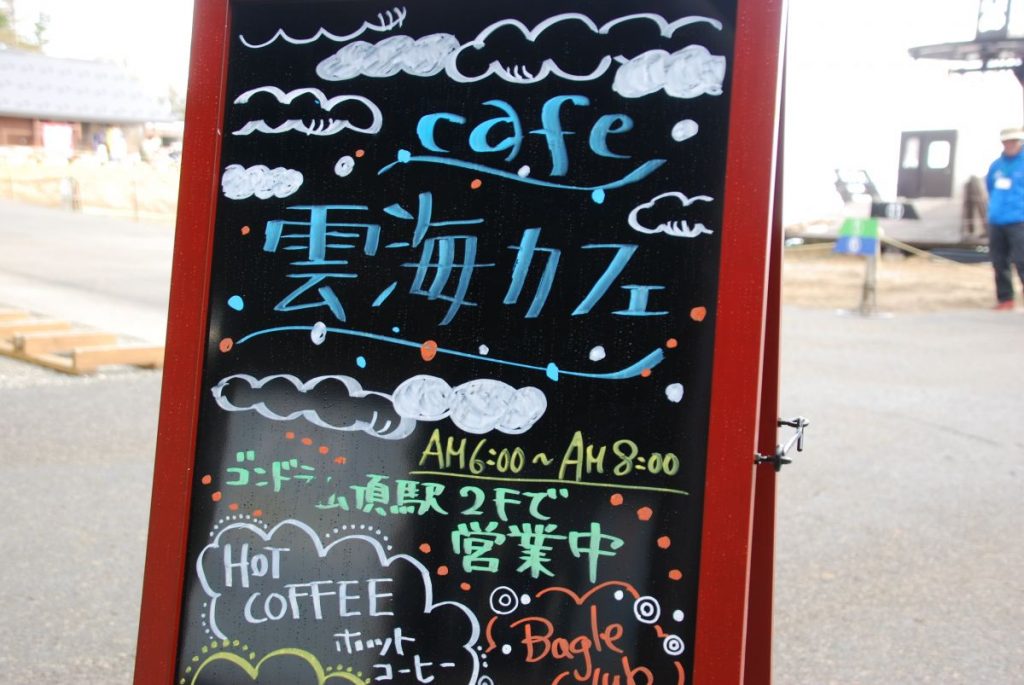 cafe
雲海カフェ
AM6:00~AM8:00
ゴンドラ山頂駅2Fで
営業中
HOT
COFFEE
ホット
コーヒー
Bagle
Club